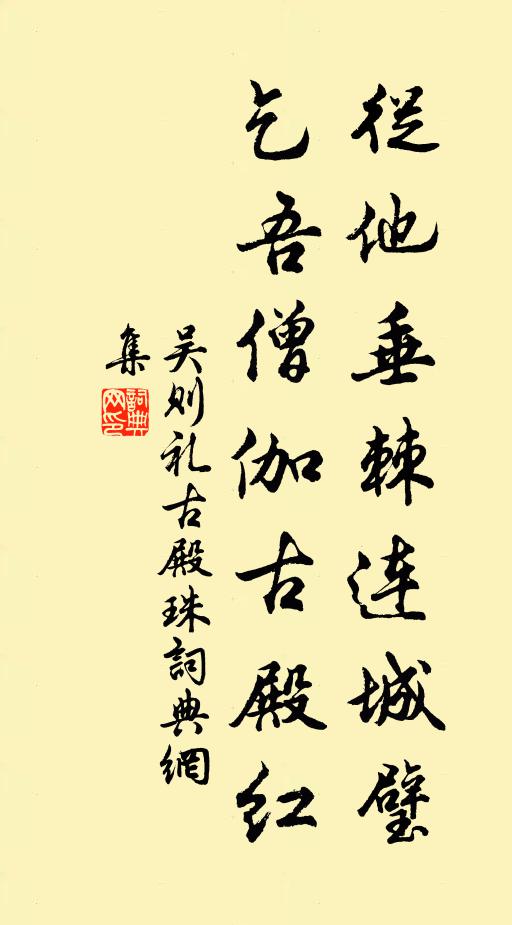 從他垂棘連城璧
乞吾僧伽古殿紅
吳則礼古殿珠詞典網
集
詞典网印